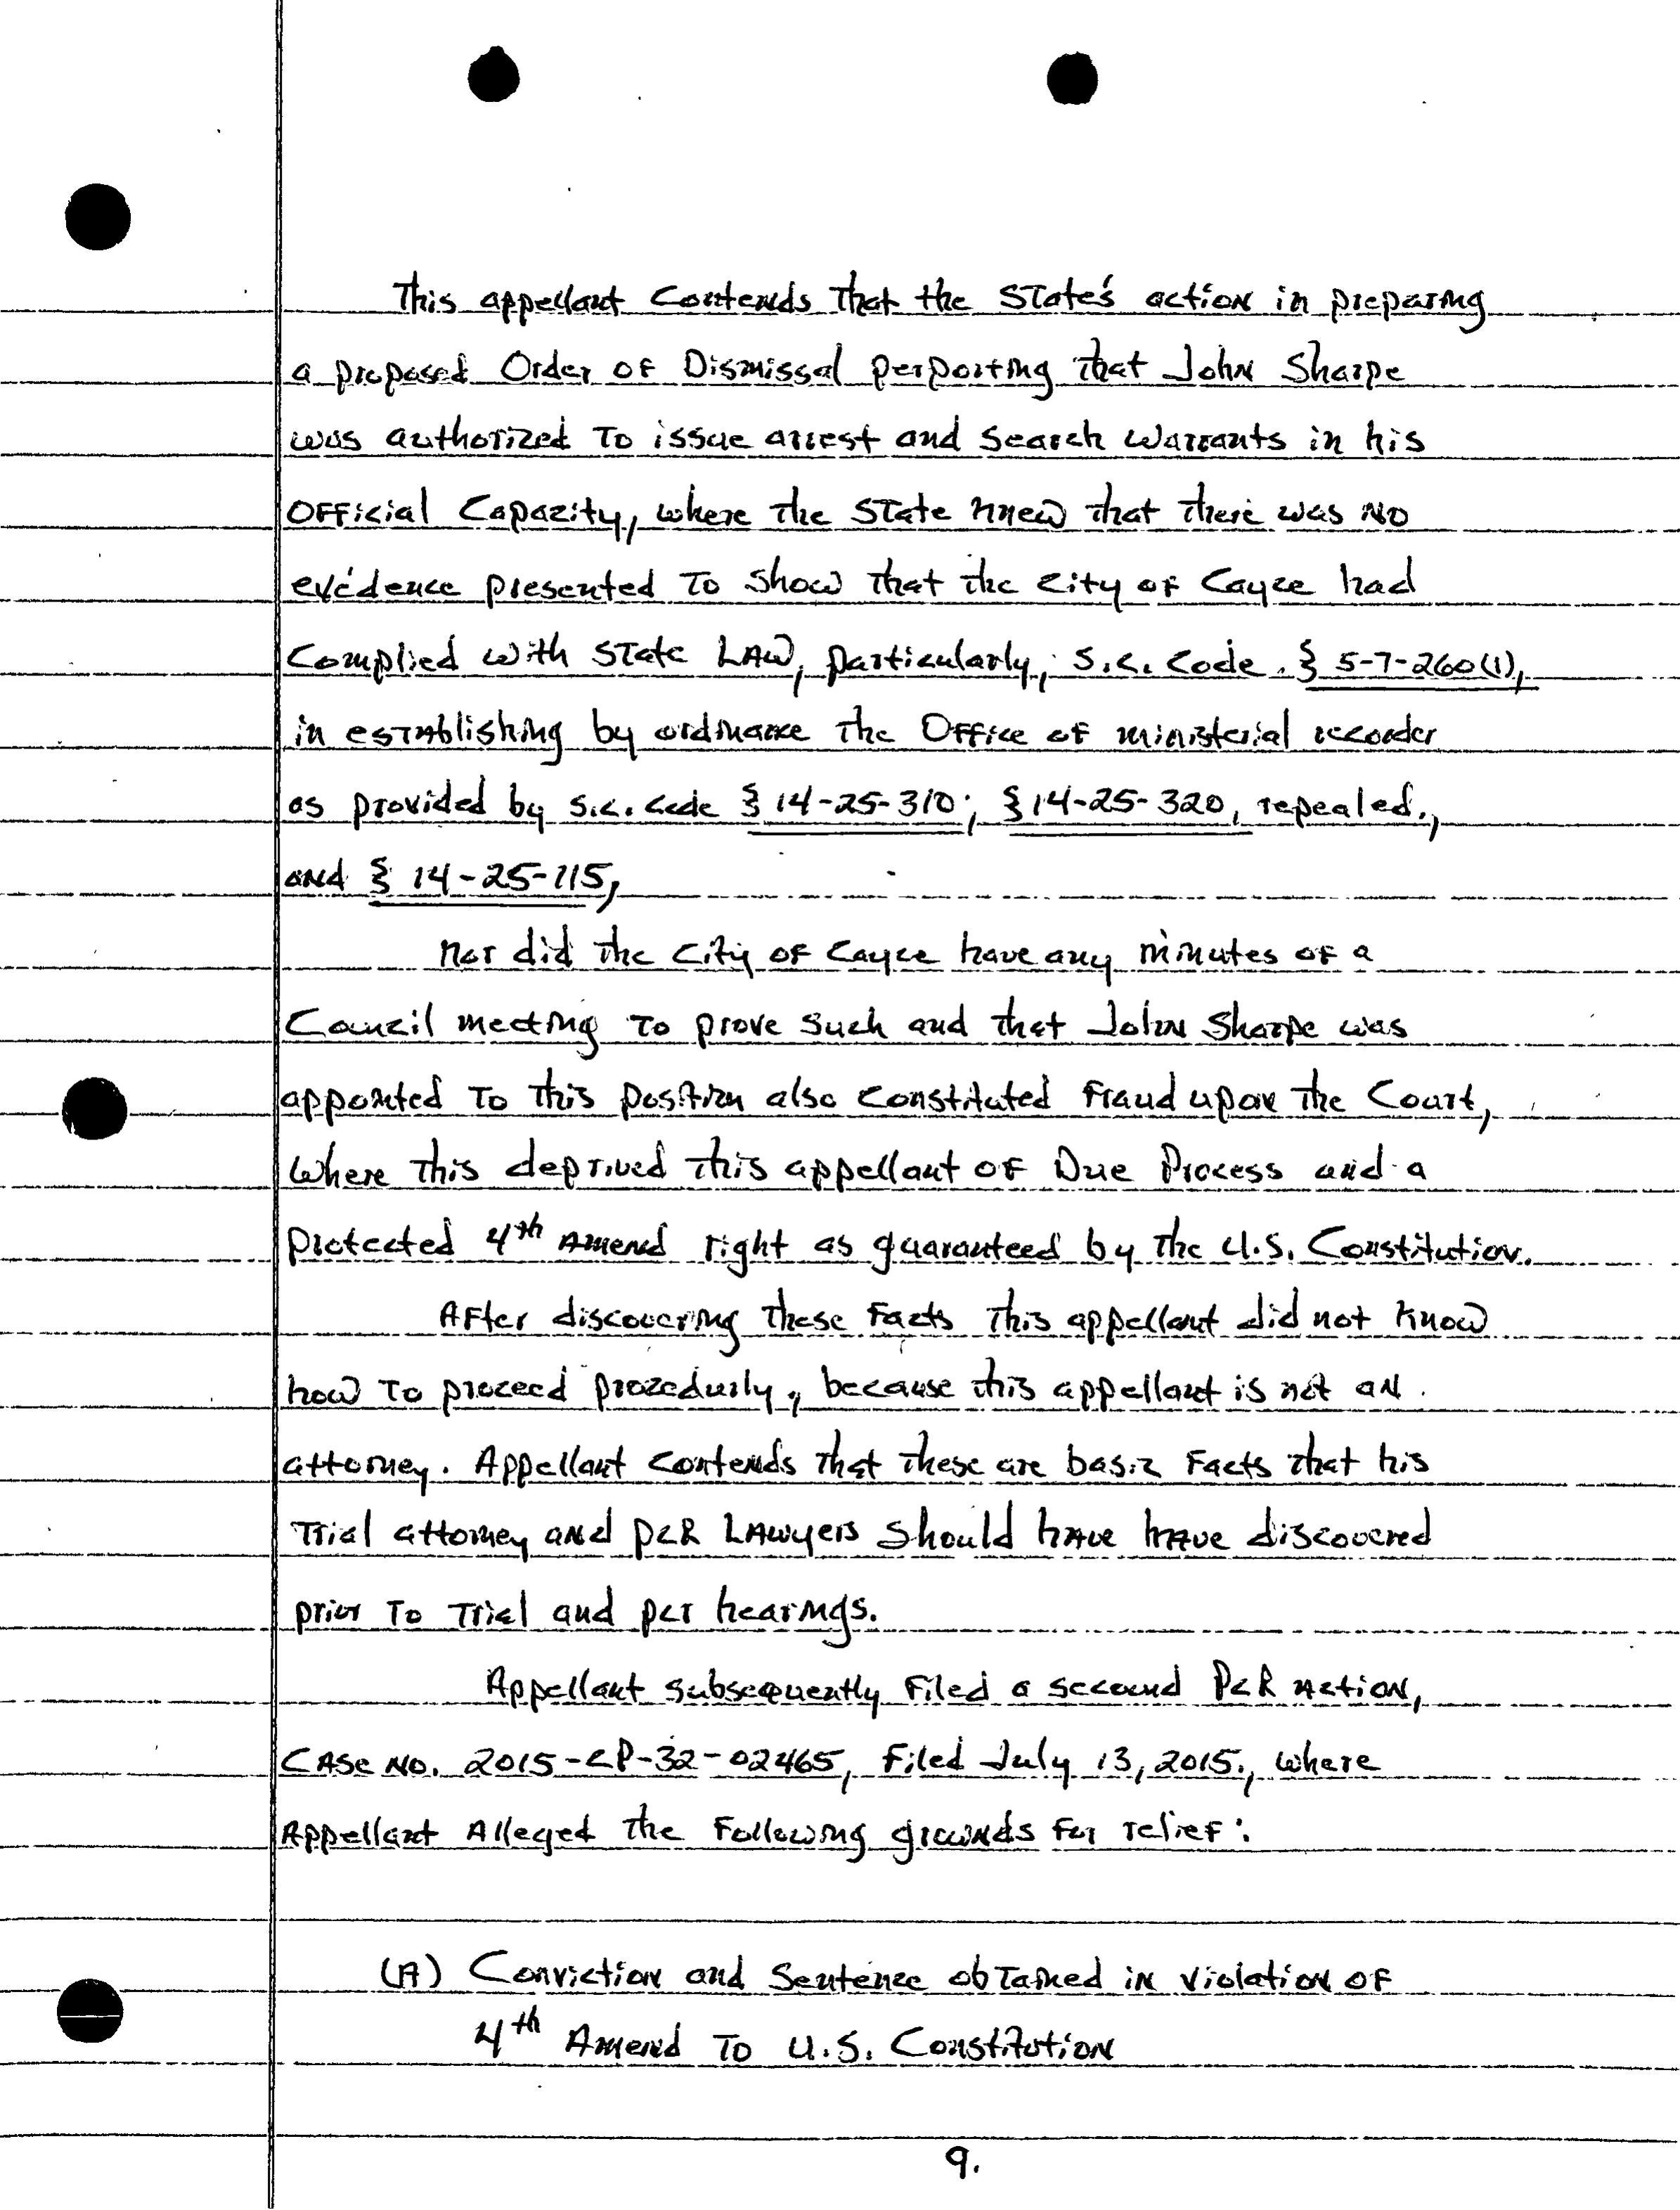 This appellant Contends That the State's action in preparing
a proposed Order of Dismissal perporting that John Sharpe
was authorized To issue arrest and search warrants in his
Official Capacity, where the State knew that there was No
evidence presented To show that the City of Cayce had
Complied with State Law, particularly, S.C. Code. § 5-7-260(1),
in establishing by ordinance the Office of ministerial recorder
as provided by S.C. Code § 14-25-310; § 14-25-320, repealed.,
and § 14-25-115,
Nor did the City of Cayce have any minutes of a
Council meeting To prove such and that John Sharpe was
appointed To this position also Constituted Fraud upon the Court,
Where this deprived this appellant of Due Process and a
protected 4th Amend right as guaranteed by the U.S. Constitution.
After discovering these Facts this appellant did not know
how To proceed procedurly, because this appellant is not an
attorney. Appellant Contends that these are basic Facts that his
Trial attorney and PCR Lawyers should have have discovered
prior To Trial and pcr hearings.
Appellant subsequently Filed a second PCR Action,
Case No. 2015-CP-32-02465, Filed July 13, 2015., where
Appellant Alleged the Following grounds for relief:
(A) Conviction and Sentence obtained in violation of
4th Amend To U.S. Constitution
9.